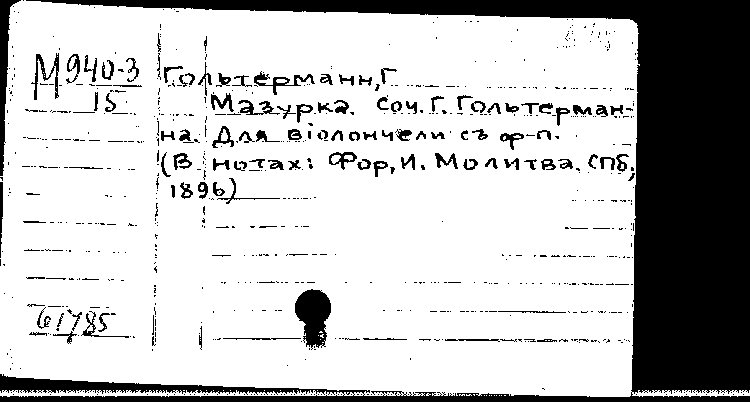 М940-3
15
Гольтерманн, Г
Мазурка. Соч. Г. Гольтерман-
на. Для віолончели съ ф-п.
(В нотах: Фор, И. Молитва. СПб,
1896)
61785